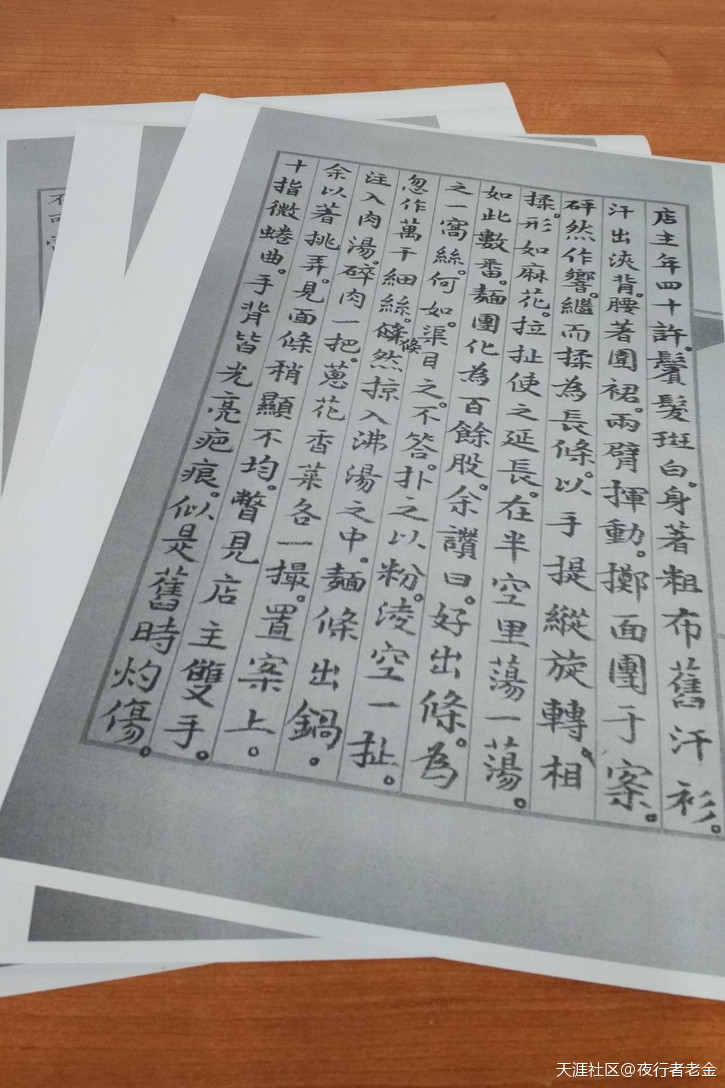 店主年四十許。鬢髮斑白。身著粗布舊汗衫。
汗出浹背。腰著圍裙。兩臂揮動。擲面團于案。
砰然作響。繼而揉為長條。以手提縱旋轉、相
揉。形如麻花。拉扯使之延長。在半空里蕩一蕩。
如此數番。麵團化為百餘股。余讚曰。好出條。為
之一窩絲。何如。渠目之。不答。扑之以粉。淩空一扯。
忽作萬千細絲。倏然掠入沸湯之中。麵條出鍋。
注入肉湯。碎肉一把。蔥花香菜各一撮。置案上。
余以著挑弄。見面條稍顯不均。瞥見店主雙手。
十指微蜷曲。手背皆光亮疤痕。似是舊時灼傷。
天涯社区@夜行者老金